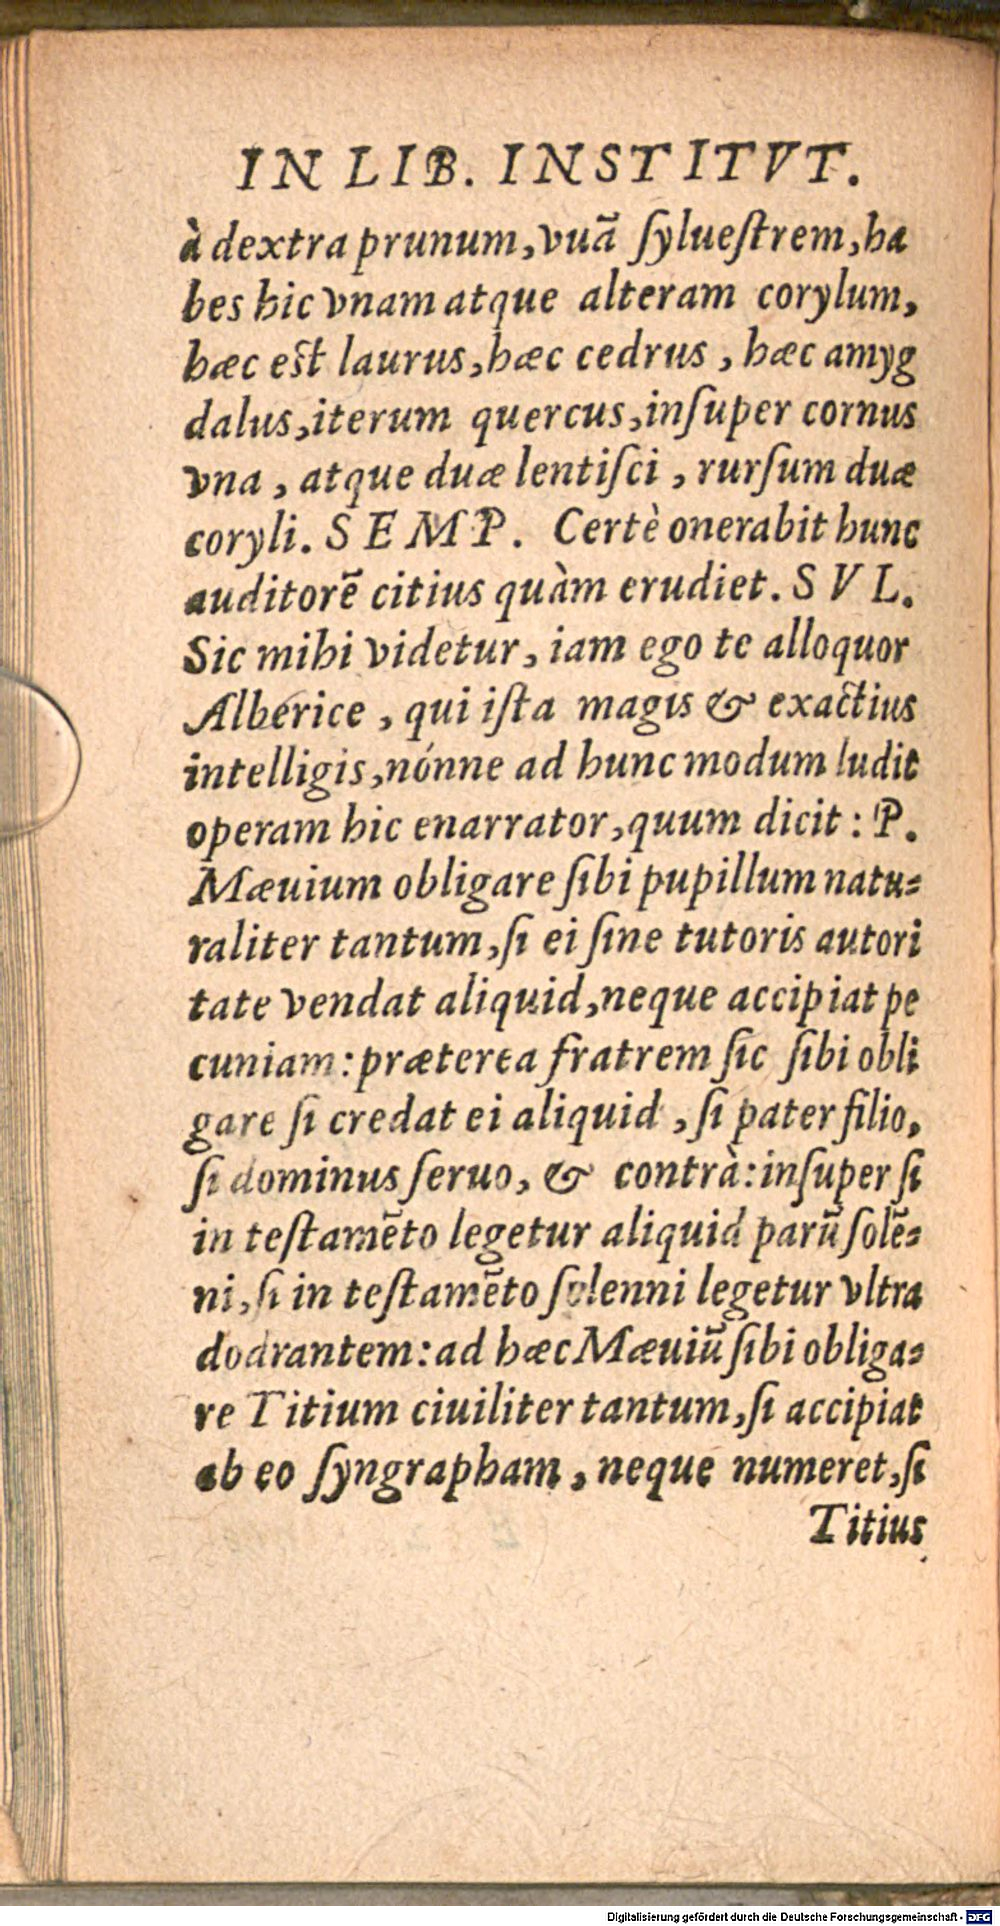 IN LIB. INSTITVT.
à dextra prunum, vuā ſylueſtrem, ha
bes hic vnam atque alteram corylum,
hæc eſt laurus, hæc cedrus, hæc amyg
dalus, iterum quercus, inſuper cornus
vna, atque duæ lentiſci, rurſum duæ
coryli. SEMP. Certè onerabit hunc
auditorē citius quàm erudiet. SVL.
Sic mihi videtur, iam ego te alloquor
Alberice, qui iſta magis & exactius
intelligis, nónne ad hunc modum ludit
operam hic enarrator, quum dicit: P.
Mæuium obligare ſibi pupillum natu-
raliter tantum, ſi ei ſine tutoris autori
tate vendat aliquid, neque accipiat pe
cuniam: præterea fratrem ſic ſibi obli
gare ſi credat ei aliquid, ſi pater filio,
ſi dominus ſeruo, & contrà: inſuper ſi
in teſtamēto legetur aliquid parū ſolē-
ni, ſi in teſtamēto ſolenni legetur vltra
dodrantem: ad hæc Mæuiū ſibi obliga-
re Titium ciuiliter tantum, ſi accipiat
ab eo ſyngrapham, neque numeret, ſi
Titius
Digitalisierung gefördert durch die Deutsche Forschungsgemeinschaft - DFG